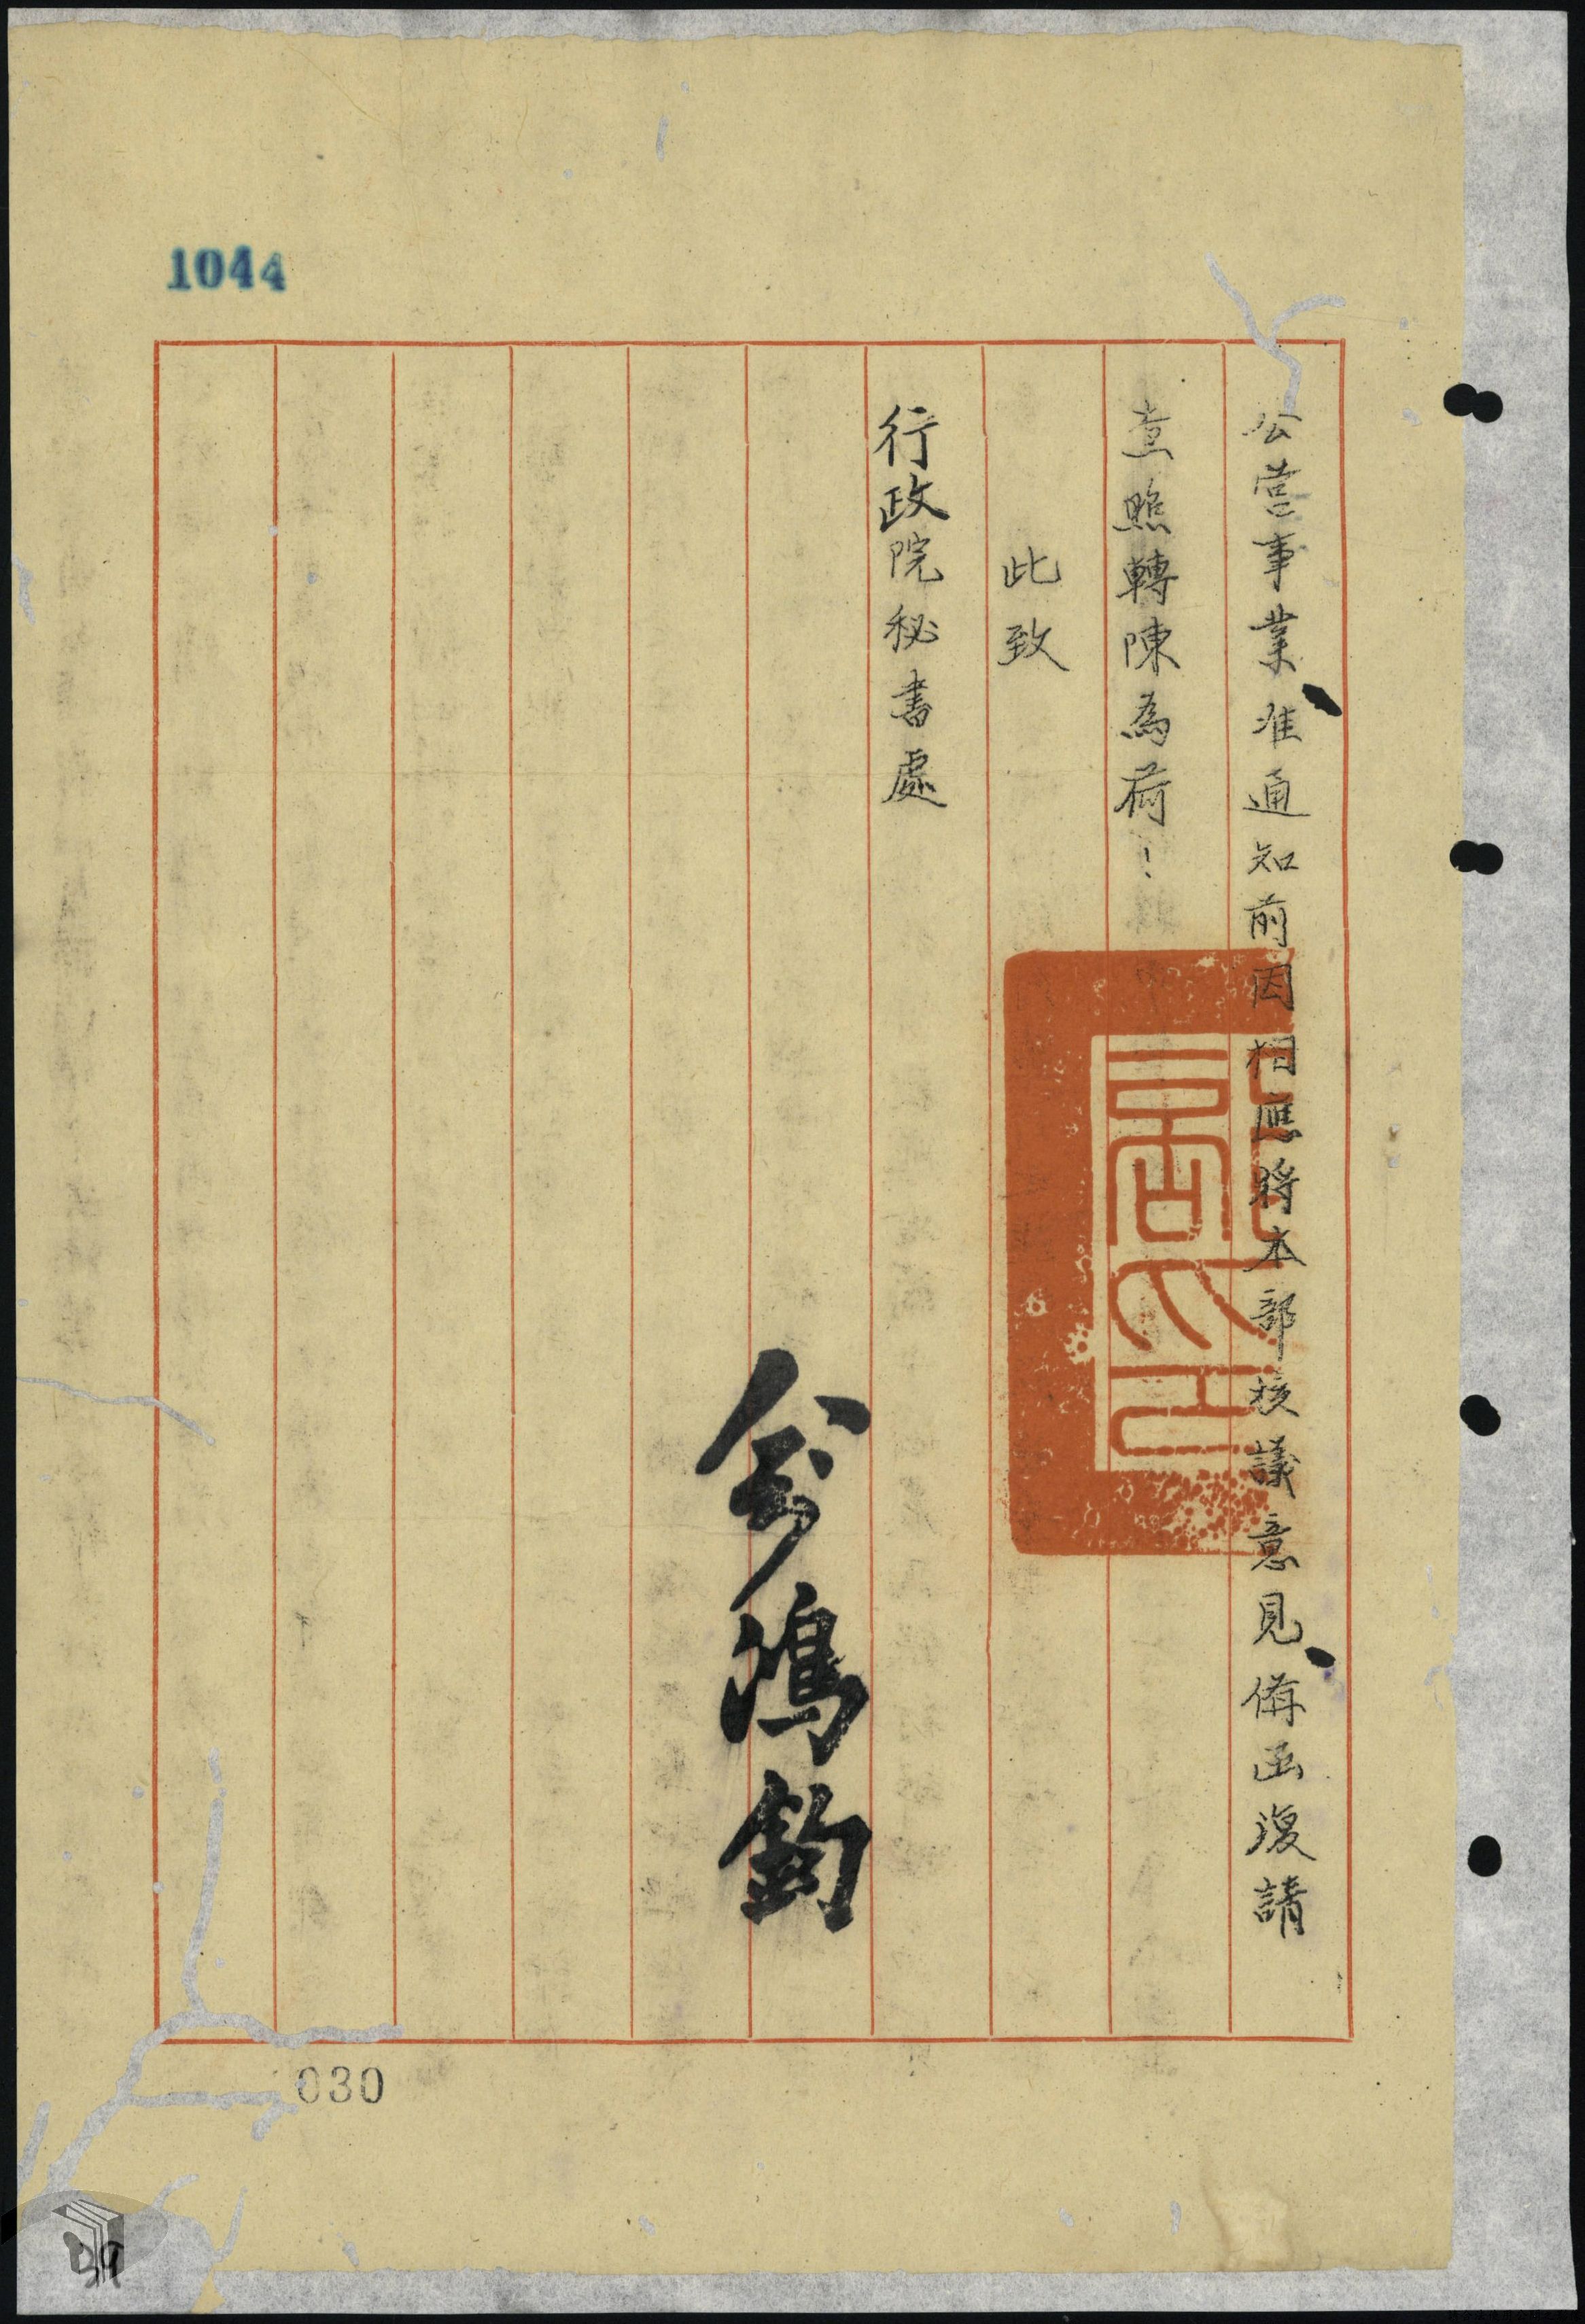 1044
公營事業准通知前因相應將本部核議意見備函復請
查照轉陳為荷！
此致
行政院秘書處
俞鴻鈞
030